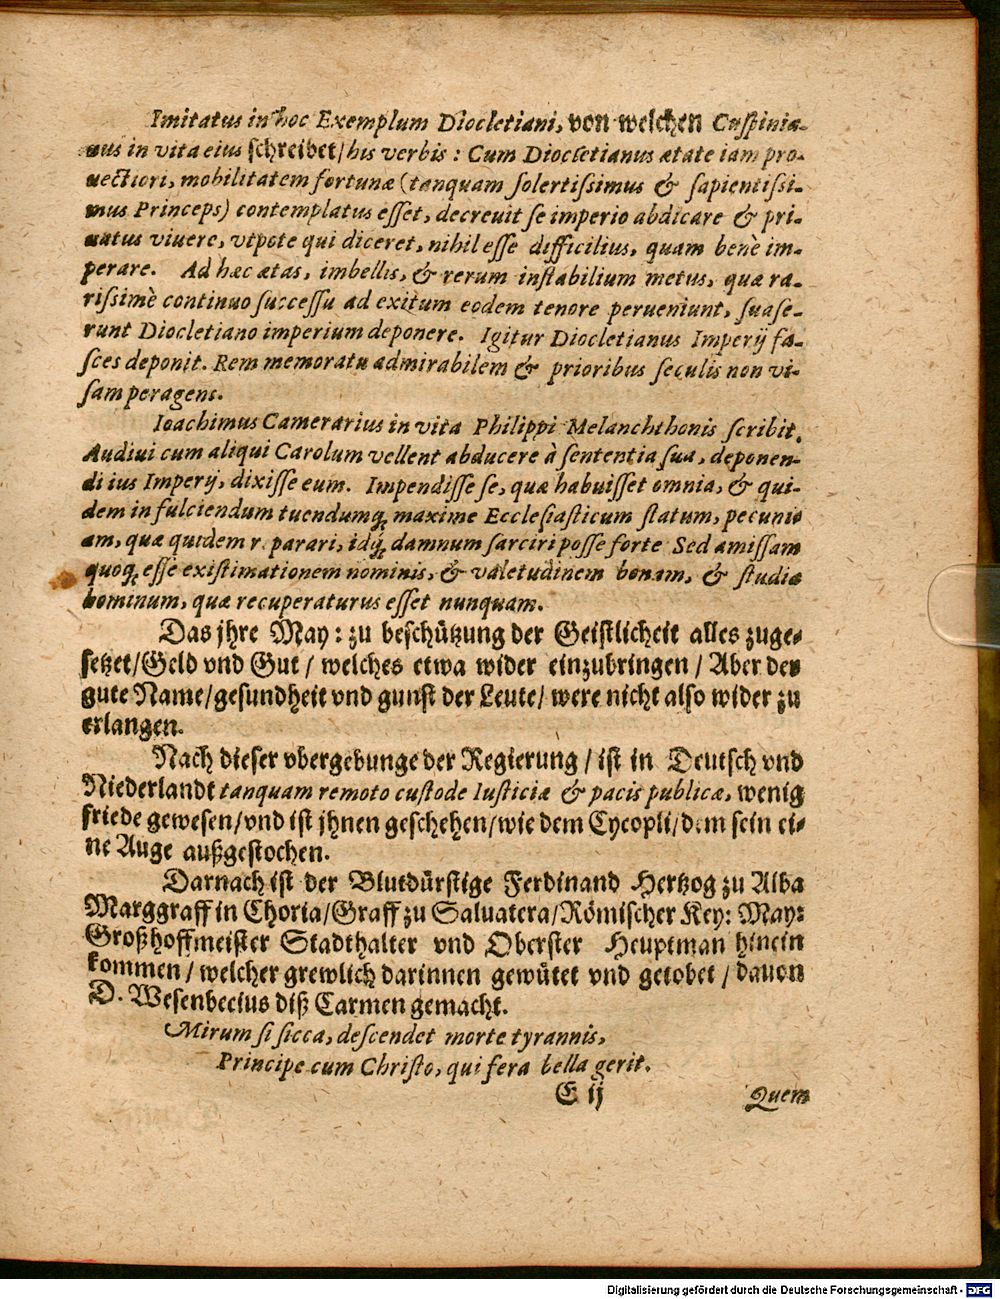 Imitatus in hoc Exemplum Diocletiani, von welchen Cuspinia-
nus in vita eius schreibet/ his verbis : Cum Diocletianus ætate iam pro-
uectiori, mobilitatem fortunæ (tanquam solertissimus & sapientissi-
mus Princeps) contemplatus esset, decreuit se imperio abdicare & pri-
uatus viuere, vtpote qui diceret, nihil esse difficilius, quam benè im-
perare. Ad hæc ætas, imbellis, & rerum instabilium metus, quæ ra-
rissimè continuo successu ad exitum eodem tenore perueniunt, suase-
runt Diocletiano imperium deponere. Igitur Diocletianus Imperij fa-
sces deponit. Rem memoratu admirabilem & prioribus seculis non vi-
sam peragens.
Ioachimus Camerarius in vita Philippi Melanchthonis scribit.
Audiui cum aliqui Carolum vellent abducere à sententia sua, deponen-
di ius Imperij, dixisse eum. Impendisse se, quæ habuisset omnia, & qui-
dem in fulciendum tuendumq; maxime Ecclesiasticum statum, pecuni
am, quæ quidem r parari, idq; damnum sarciri posse forte Sed amissam
quoq; esse existimationem nominis, & valetudinem bonam, & studia
hominum, quæ recuperaturus esset nunquam.
Das jhre May : zu beschützung der Geistlicheit alles zuge-
setzet/Geld vnd Gut / welches etwa wider einzubringen / Aber der
gute Name/gesundheit vnd gunst der Leute/ were nicht also wider zu
erlangen.
Nach dieser vbergebunge der Regierung / ist in Deutsch vnd
Niederlandt tanquam remoto custode Iusticiæ & pacis publicæ, wenig
friede gewesen/vnd ist jhnen geschehen/wie dem Cycopli/dem sein ei-
ne Auge außgestochen.
Darnach ist der Blutdürstige Ferdinand Hertzog zu Alba
Marggraff in Choria/Graff zu Saluatera/Römischer Key: May:
Großhoffmeister Stadthalter vnd Oberster Heuptman hinein
kommen / welcher grewlich darinnen gewütet vnd getobet / dauon
D. Wesenbecius diß Carmen gemacht.
Mirum si sicca, descendet morte tyrannis,
Principe cum Christo, qui fera bella gerit.
E ij Quem
Digitalisierung gefördert durch die Deutsche Forschungsgemeinschaft - DFG